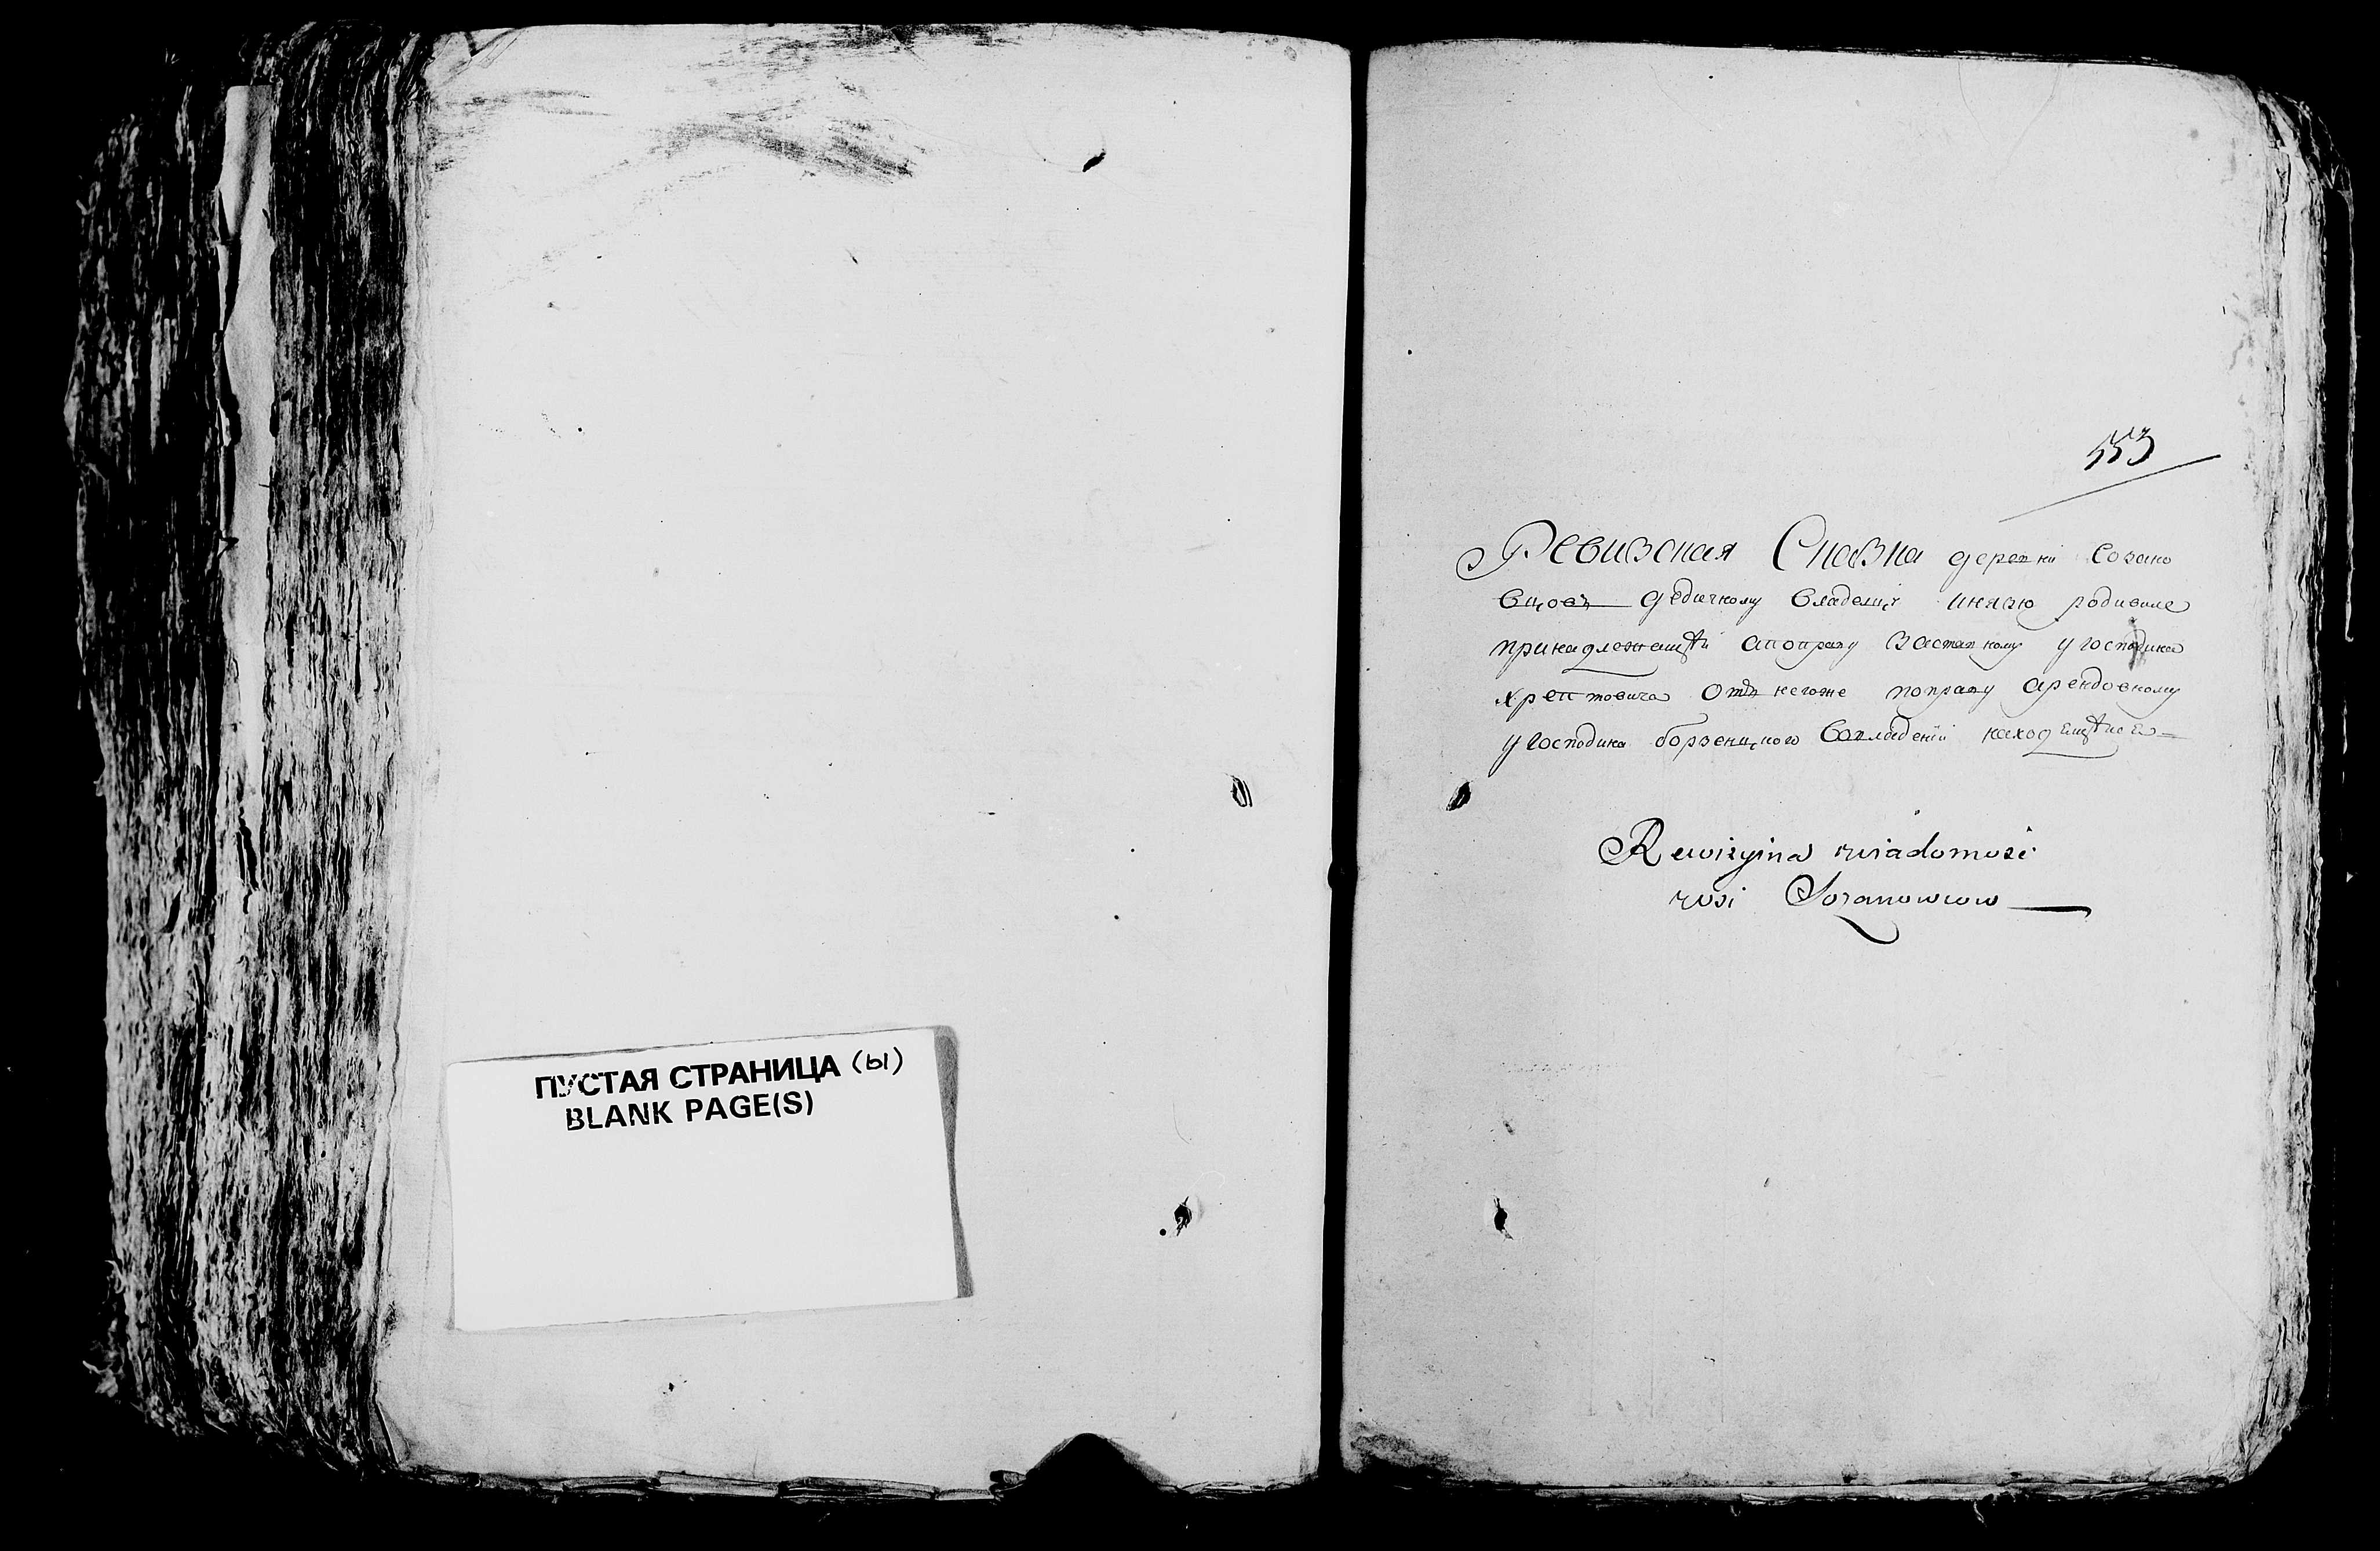 ПУСТАЯ СТРАНИЦА (ы)
BLANK PAGE(S)
553
Ревизская Сказка деревни Созано
вцовъ дедичному владелцу князю родивиле
принадлежащей апоправу заставному у господина
хрептовича Отъ негоже поправу арендовному
у господина борзенцкого вовладении находящейся
Rewizyina wiadomosc
wsi Sozanowcow